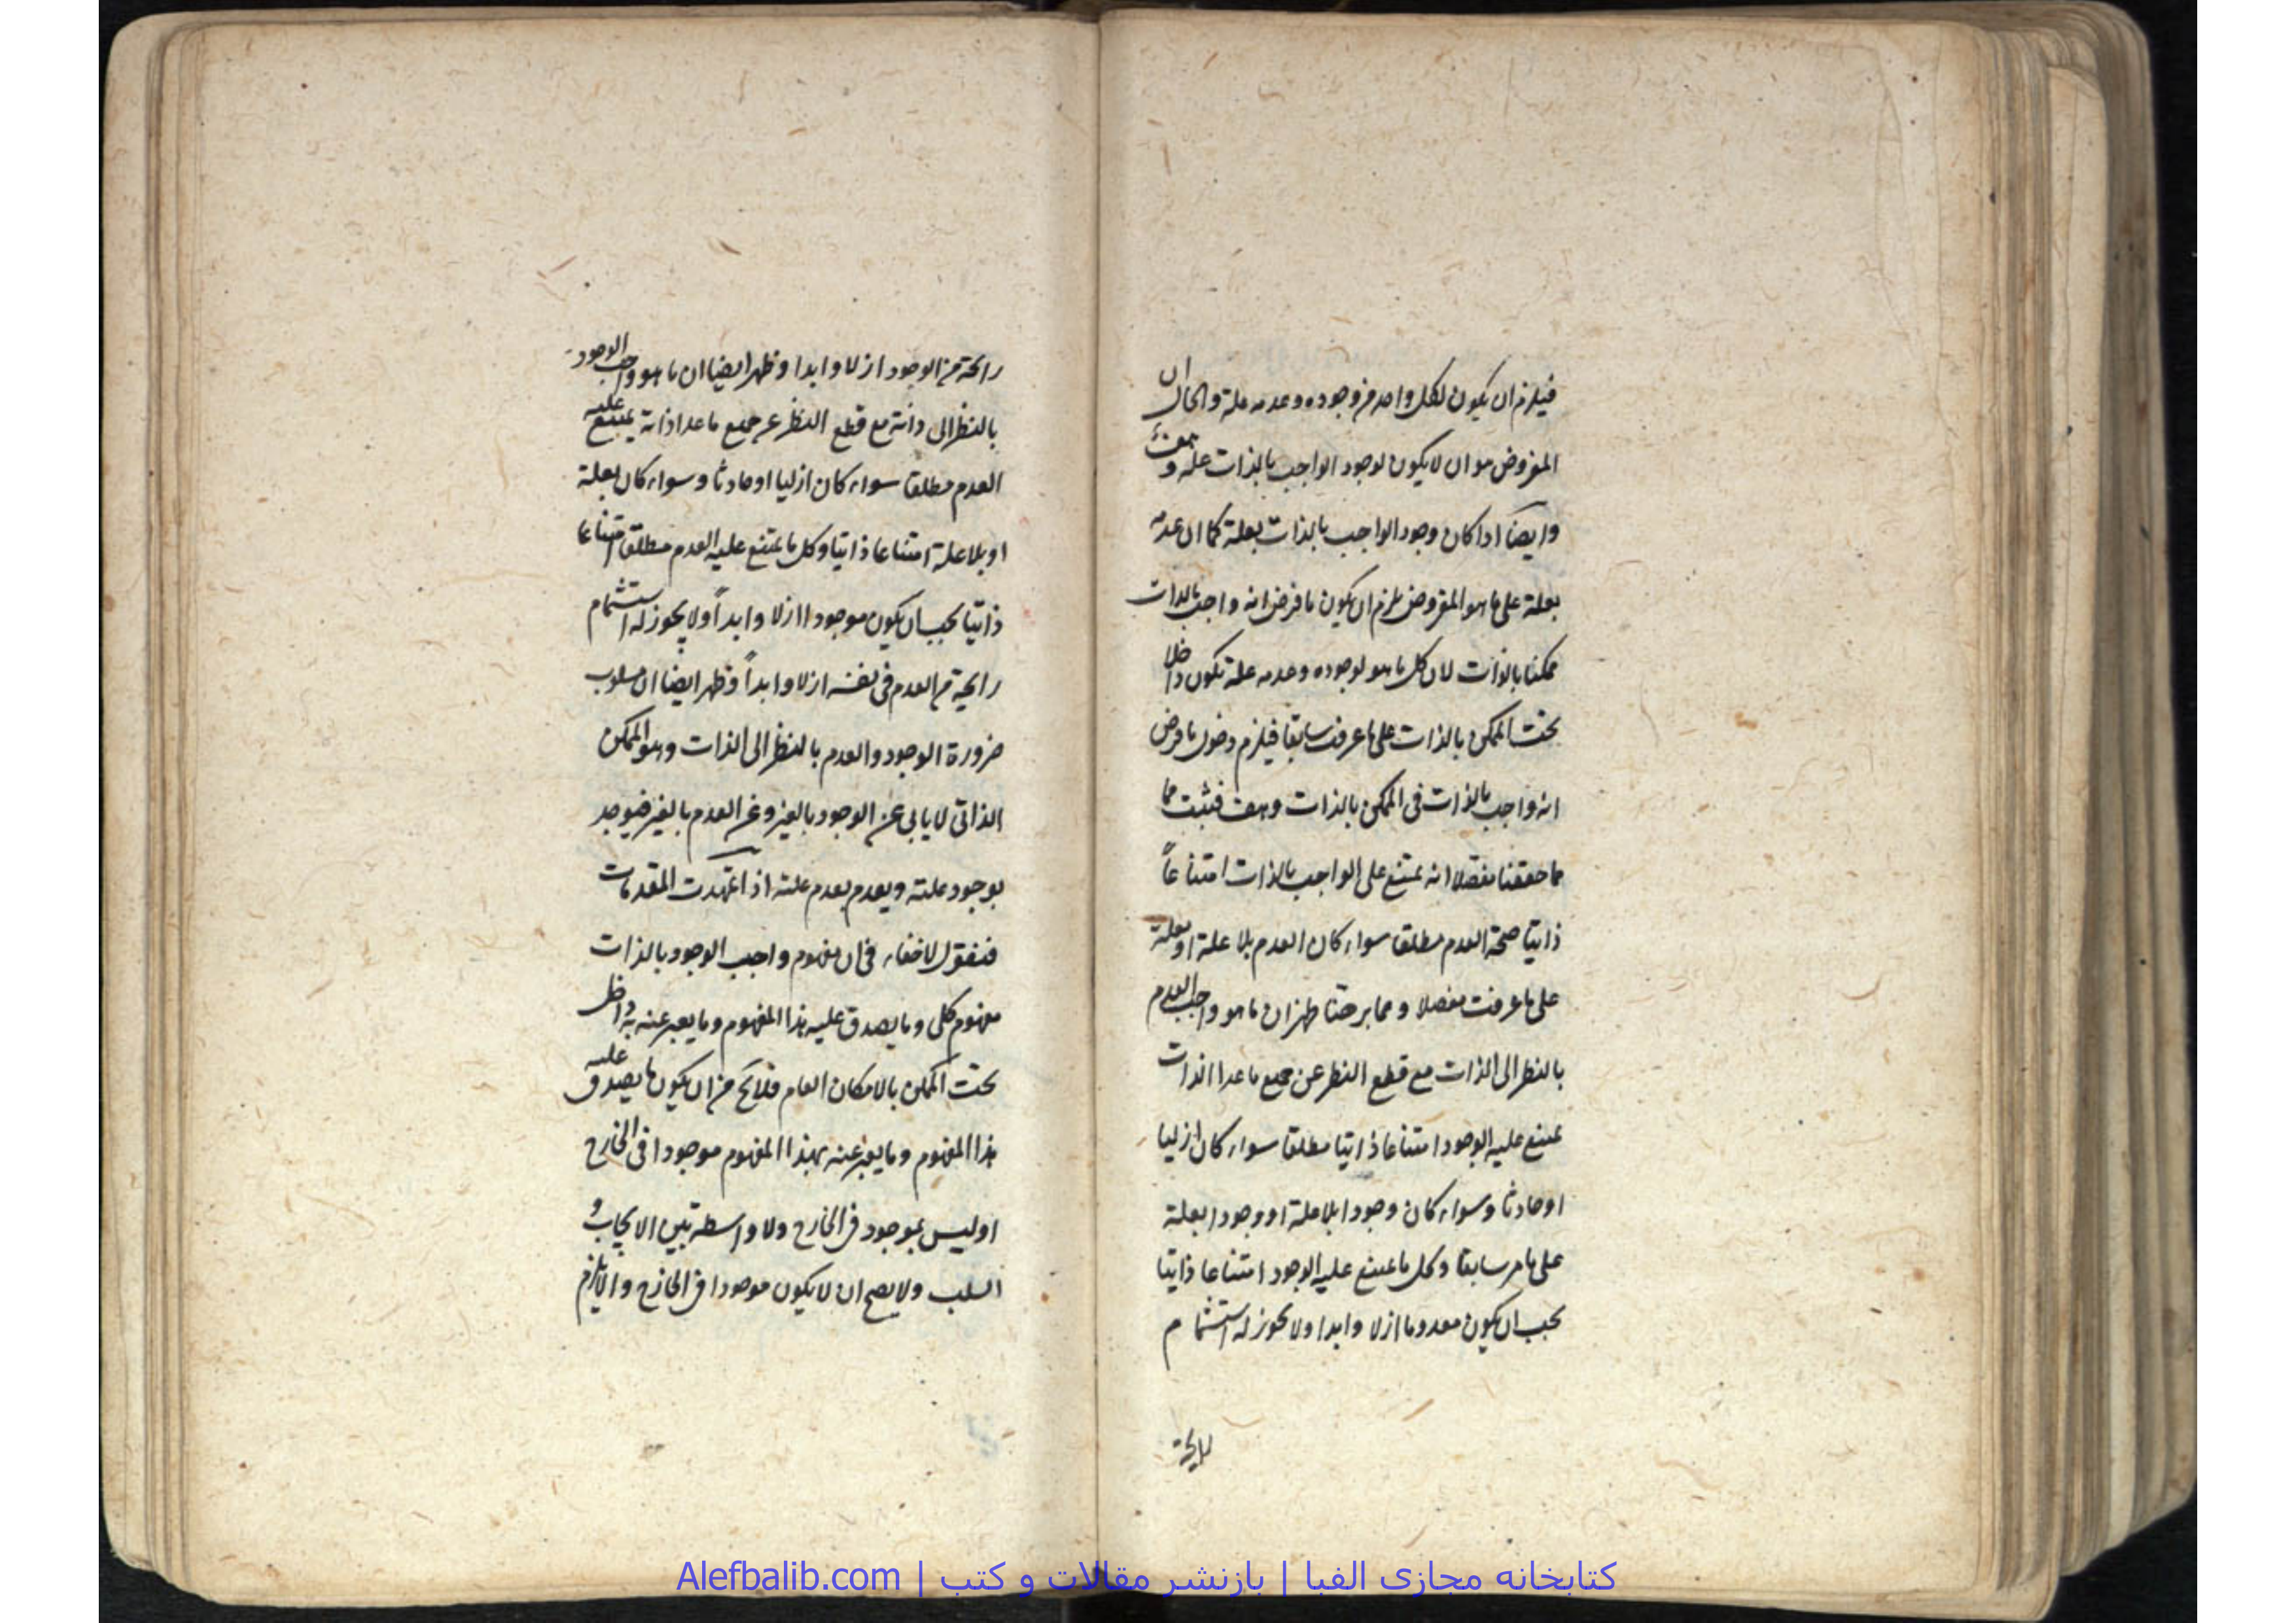 فيلزم ان يكون لكل واحد من وجوده وعدمه علة والحال ان
المفروض هو ان لا يكون لوجود الواجب بالذات علة وهف
وايضا اذا كان وجود الواجب بالذات بعلة كما ان عدمه
بعلة على ما هو المفروض يلزم ان يكون ما فرض انه واجب بالذات
ممكنا بالذات لان كل ما هو لوجوده وعدمه علة تكون داخلا
تحت الممكن بالذات على ما عرفت سابقا فيلزم دخول ما فرض
انه واجب بالذات فى الممكن بالذات وهف فثبت مما
مما حققنا مفصلا انه يمتنع على الواجب بالذات امتناعاً
ذاتيا صحة العدم مطلقا سواء كان العدم بلا علة او بعلة
على ما عرفت مفصلا ومما برهنا ظهر ان ما هو واجب العدم
بالنظر الى الذات مع قطع النظر عن جميع ما عدا الذات
يمتنع عليه الوجود امتناعا ذاتيا مطلقا سواء كان ازليا
او حادثا وسواء كان وجودا بلا علة او وجودا بعلة
على ما مر سابقا وكل ما يمتنع عليه الوجود امتناعا ذاتيا
يجب ان يكون معدوما ازلا وابدا ولا يجوز له استشمام
رايحة
رائحة من الوجود ازلا وابدا وظهر ايضا ان ما هو واجب الوجود
بالنظر الى ذاته مع قطع النظر عن جميع ما عدا ذاته يمتنع عليه
العدم مطلقا سواء كان ازليا او حادثا وسواء كان بعلة
او بلا علة امتناعا ذاتيا وكل ما يمتنع عليه العدم مطلقا امتناعا
ذاتيا يجب ان يكون موجودا ازلا وابداً ولا يجوز له استشمام
رايحة من العدم فى نفسه ازلا وابداً وظهر ايضا ان مسلوب
ضرورة الوجود والعدم بالنظر الى الذات وهو الممكن
الذاتى لا يابى عن الوجود بالغير وعن العدم بالغير فيوجد
بوجود علته ويعدم بعدم علته اذا تمهدت المقدمات
فنقول لا خفاء فى ان مفهوم واجب الوجود بالذات
مفهوم كلى وما يصدق عليه هذا المفهوم وما يعبر عنه به داخل
تحت الممكن بالامكان العام فلا يخ من ان يكون ما يصدق عليه
هذا المفهوم وما يعبر عنه بهذا المفهوم موجودا فى الخارج
او ليس بموجود فى الخارج ولا واسطة بين الايجاب و
السلب ولا يصح ان لا يكون موجودا فى الخارج والا يلزم
کتابخانه مجازی الفبا | بازنشر مقالات و کتب | Alefbalib.com